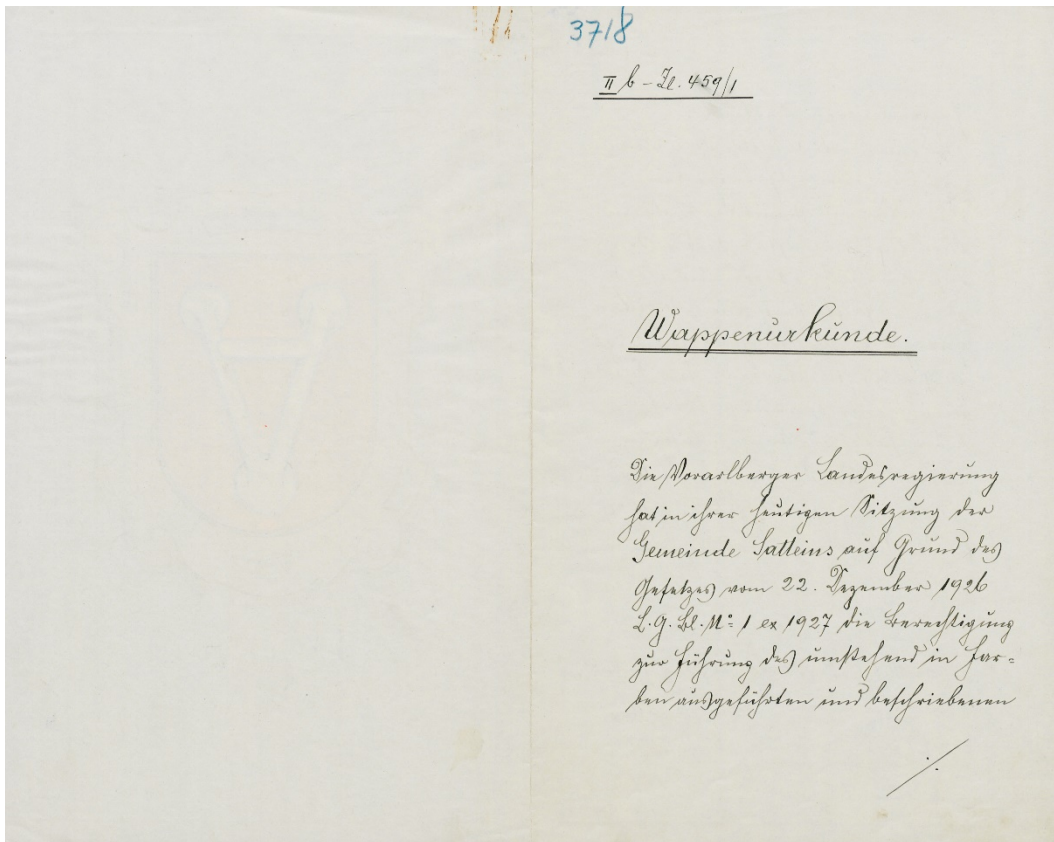 3718
II b - Zl. 459/1
Wappenurkunde.
Die Vorarlberger Landesregierung
hat in ihrer heutigen Sitzung der
Gemeinde Satteins auf Grund des
Gesetzes vom 22. Dezember 1926
L.G.Bl. No 1 ex 1927 die Berechtigung
zur Führung des umstehend in Far=
ben ausgeführten und beschriebenen
./.